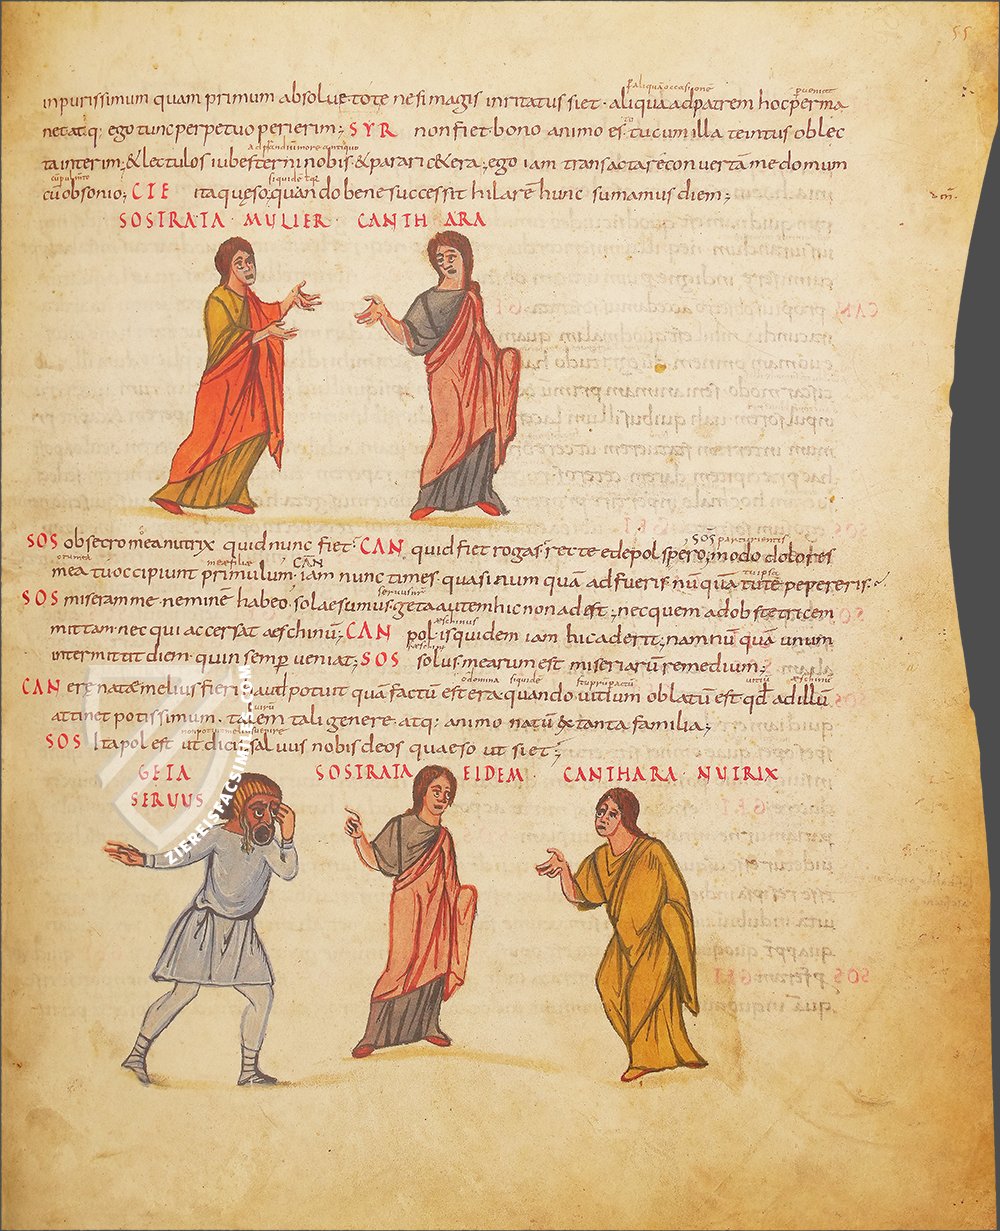 55
inpurissimum quam primum absolvetote nesi magis inritatus siet. aliqua adpatrem hoc perma
net atq; ego tunc perpetuo perierim; SYR non fiet bono animo es. tu cum illa te intus oblec
ta interim; & lectulos iube sterni nobis & parari cetera; ego iam transacta re convertam me domum
cū obsonio; CTE ita quęso, quando bene successit hilarē hunc sumamus diem;
SOSTRATA MULIER CANTHARA
SOS obsecro mea nutrix quid nunc fiet. CAN quid fiet rogas. recte edepol spero; modo dolores
mea tu occipiunt primulum; CAN iam nunc times. quasi num quam adfueris. nūquā tute pepereris.
SOS miseram me neminē habeo. solae sumus. geta autem hic non adest; nec quem ad obstetricem
mittam. nec qui accersat aeschinū; CAN pol. is quidem iam hic aderit; nam nūquam unum
intermittit diem. quin semp veniat; SOS solus mearum est miseriarū remedium;
CAN e re nata melius fieri haud potuit quā factū est era. quando vitium oblatū est qd ad illū
attinet potissimum. talem tali genere. atq; animo natū ex tanta familia;
SOS Ita pol est ut dicis, salvus nobis deos quaeso ut siet;
GETA SOSTRATA EIDEM CANTHARA NUTRIX
SERVUS
ZIEREISFACSIMILES.COM